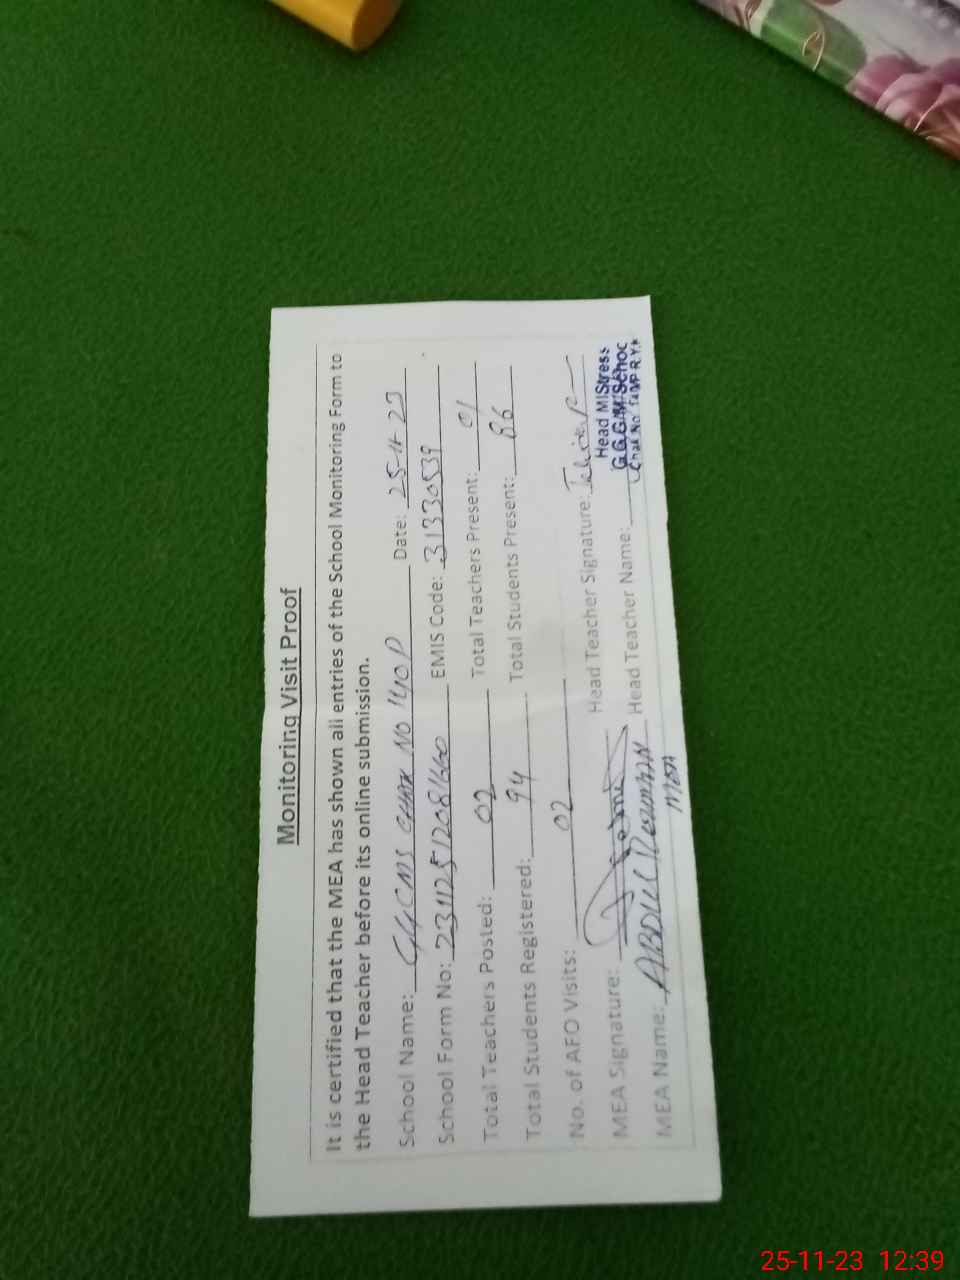 Monitoring Visit Proof
It is certified that the MEA has shown all entries of the School Monitoring Form to
the Head Teacher before its online submission.
School Name: GGCMS CHAK NO 140P Date: 25-11-23
School Form No: 23112512081660 EMIS Code: 31330539
Total Teachers Posted: 02 Total Teachers Present: 01
Total Students Registered: 94 Total Students Present: 86
No. of AFO Visits: 02
MEA Signature: Head Teacher Signature:
MEA Name: ABDUL REHMAN Head Teacher Name:
MEA
Head MIStress
Chak No R.Y.K
25-11-23 12:39